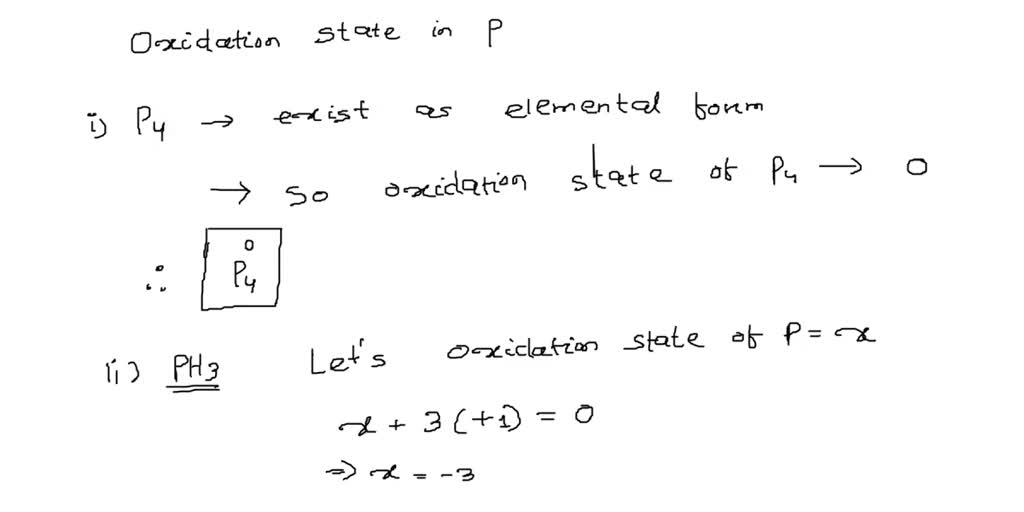 Oxidation state in P
i) P4 → exist as elemental form
→ so oxidation state of P4 → 0
∴ 0
P4
ii) PH3 Let's oxidation state of P = x
x + 3 (+1) = 0
⇒ x = -3